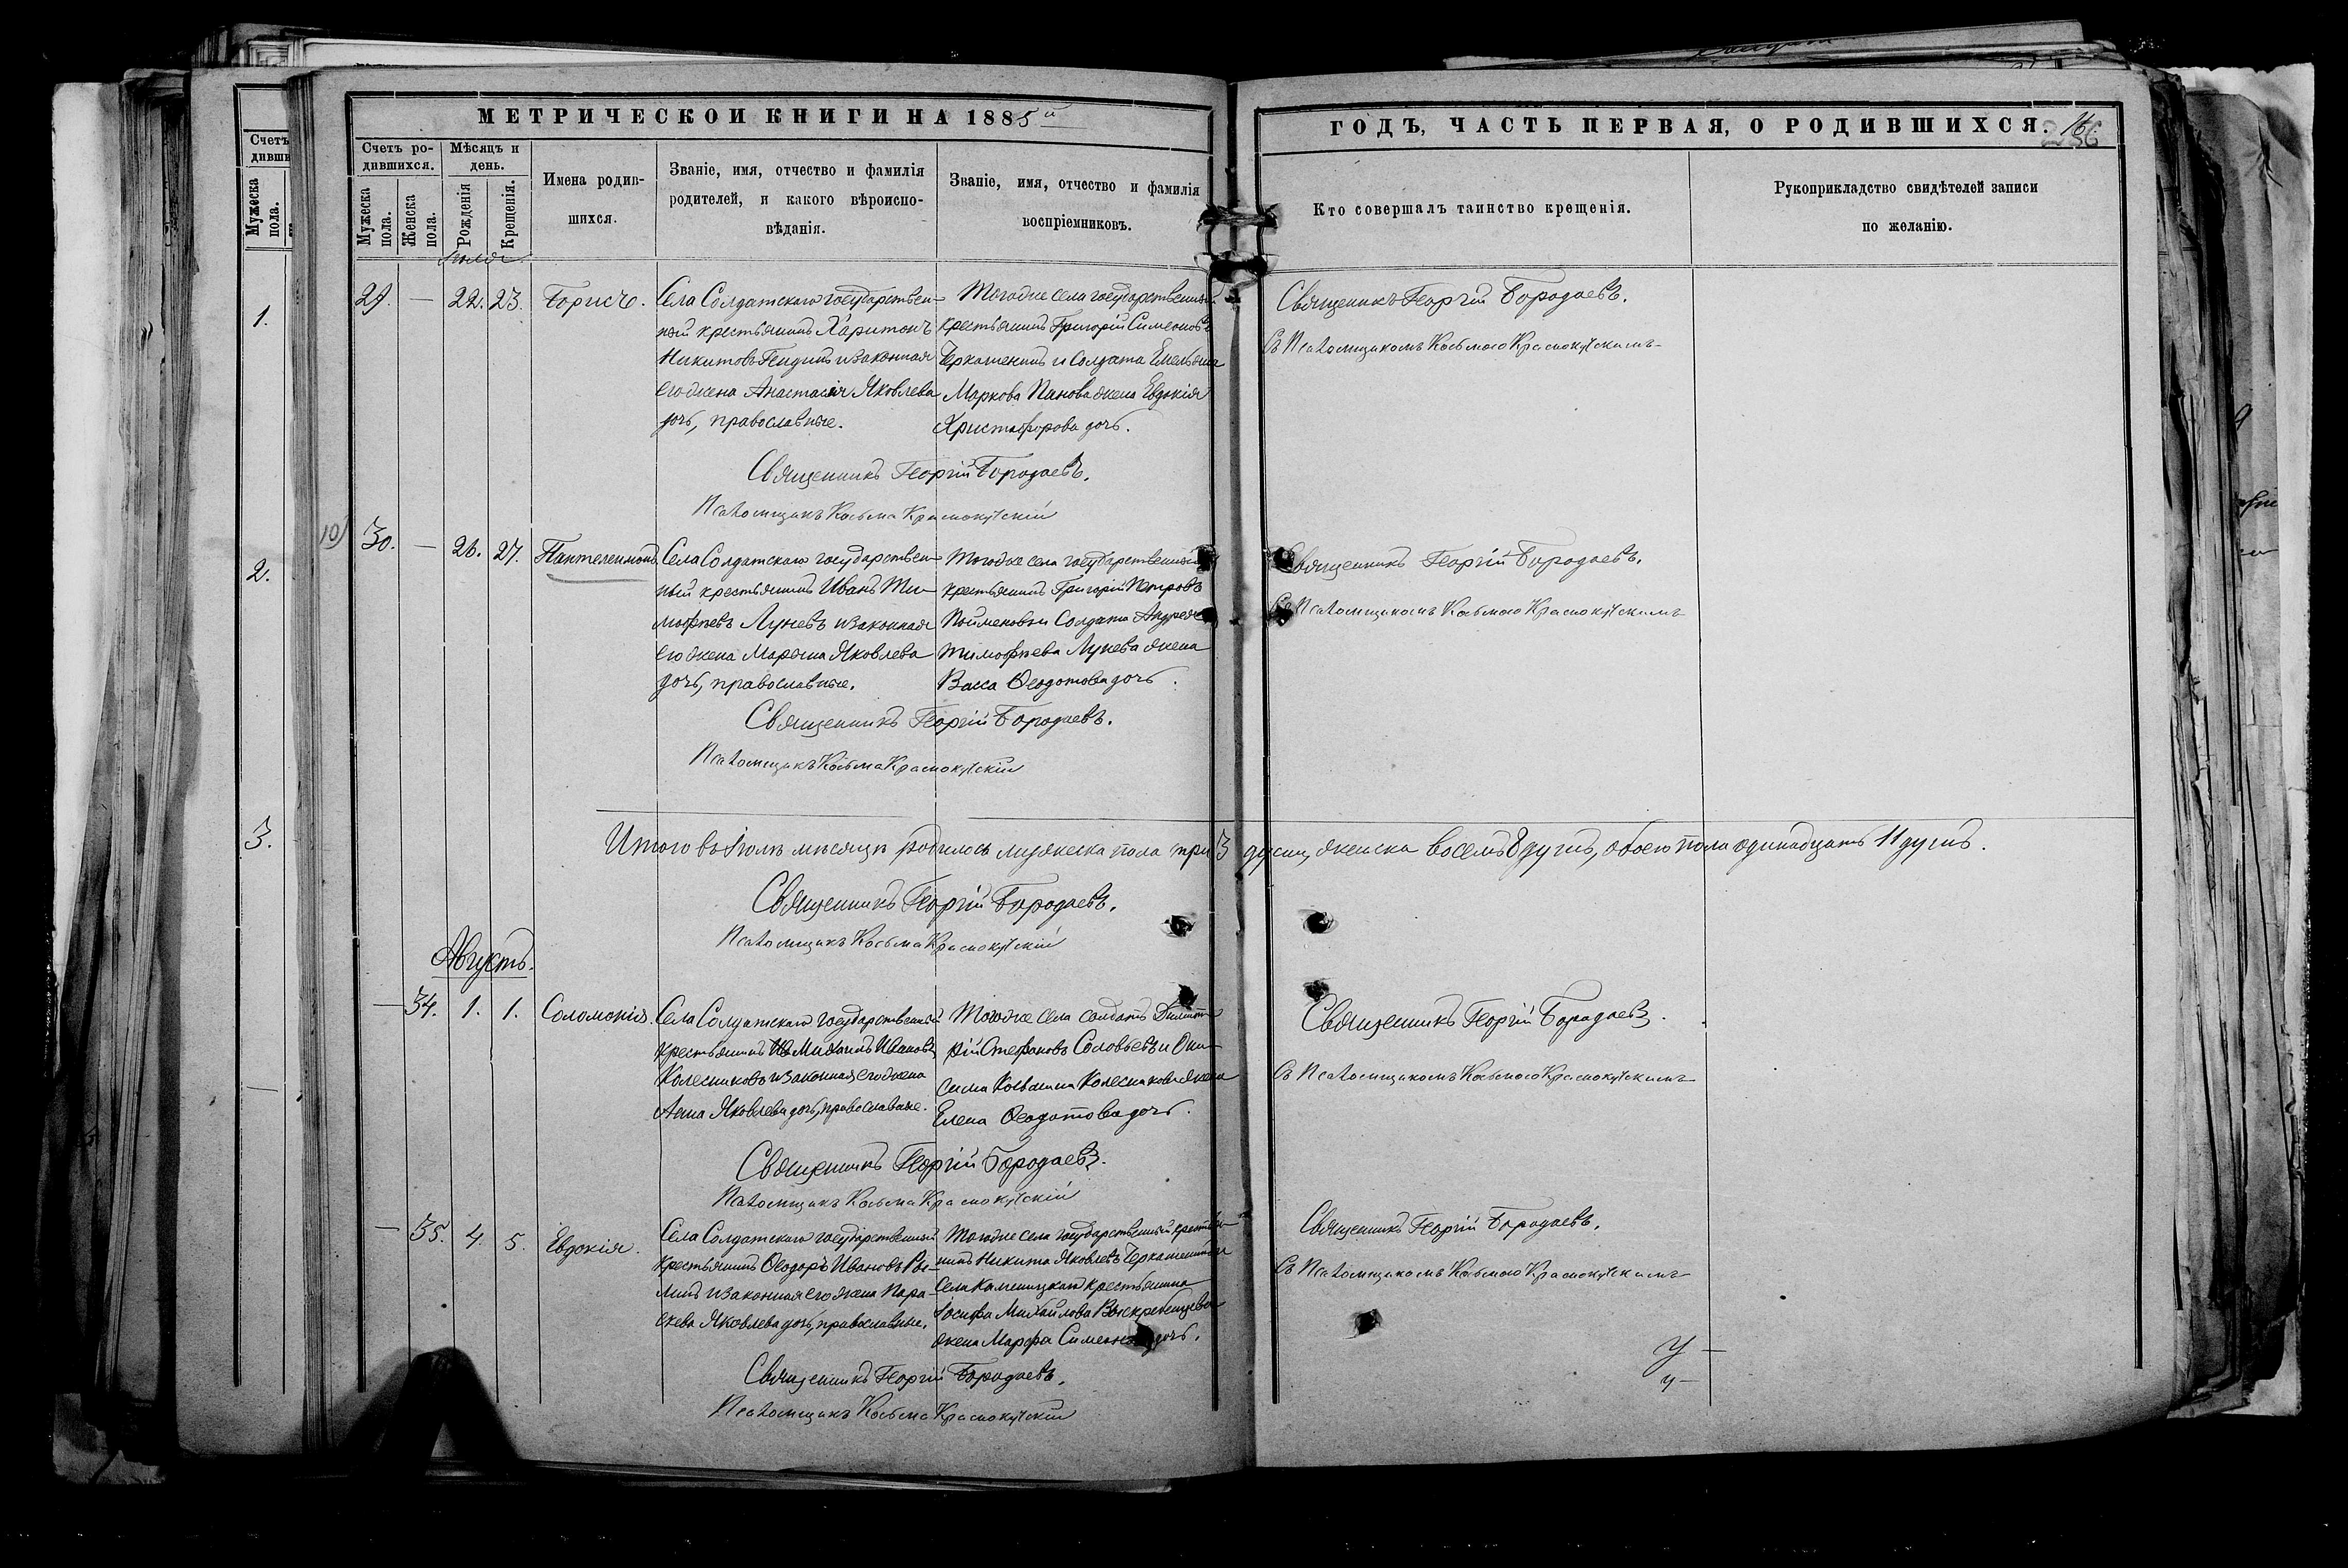 МЕТРИЧЕСКОЙ КНИГИ НА 1885й
ГОДЪ, ЧАСТЬ ПЕРВАЯ, О РОДИВШИХСЯ.
Счетъ родившихся.
Мѣсяцъ и день.
Мужеска пола.
Женска пола.
Рожденія
Крещенія.
Имена родившихся.
Званіе, имя, отчество и фамилія
родителей, и какого вѣроиспо-
вѣданія.
Званіе, имя, отчество и фамилія
воспріемниковъ.
Кто совершалъ таинство крещенія.
Рукоприкладство свидѣтелей записи
по желанію.
Іюля
29. — 22. 23. Борисъ.
Села Солдатскаго государствен-
ный крестьянинъ Харитонъ
Никитовъ и законная
его жена Анастасія Яковлева
дочь, православные.
Тогоже села государственный
крестьянинъ Григорій Симеоновъ
Черкашенинъ и солдата Емельяна
Маркова Панова жена Евдокія
Христофорова дочь.
Священникъ Георгій Бородаевъ.
Съ Псаломщикомъ Косьмою Краснокутскимъ
Священникъ Георгій Бородаевъ.
Псаломщикъ Косьма Краснокутскій
10)
30. — 26. 27. Пантелеимонъ.
Села Солдатскаго государствен-
ный крестьянинъ Иванъ Ти-
мофѣевъ Луневъ и законная
его жена Марѳа Яковлева
дочь, православные.
Тогоже села государственный
крестьянинъ Григорій Петровъ
Пойменовъ и Солдата Андрея
Тимофѣева Лунева жена
Васса Ѳеодотова дочь.
Священникъ Георгій Бородаевъ.
Съ Псаломщикомъ Косьмою Краснокутскимъ
Священникъ Георгій Бородаевъ.
Псаломщикъ Косьма Краснокутскій
Итого въ Іюлѣ мѣсяцѣ родилось мужеска пола три 3 души, женска восемь 8 душъ, обоего пола одинадцать 11 душъ.
Священникъ Георгій Бородаевъ.
Псаломщикъ Косьма Краснокутскій
Августъ.
— 34. 1. 1. Соломонія.
Села Солдатскаго государственный
крестьянинъ Михаилъ Ивановъ
Колесниковъ и законная его жена
Анна Яковлева дочь, православные.
Тогоже села солдатъ Димит-
рій Стефановъ Соловьевъ и Они-
сима Космина Колесникова жена
Елена Ѳеодотова дочь.
Священникъ Георгій Бородаевъ.
Съ Псаломщикомъ Косьмою Краснокутскимъ
Священникъ Георгій Бородаевъ.
Псаломщикъ Косьма Краснокутскій
— 35. 4. 5. Евдокія.
Села Солдатскаго государственный
крестьянинъ Ѳеодоръ Ивановъ
и законная его жена Пара-
скева Яковлева дочь, православные.
Тогоже села государственный крестья-
нинъ Никита Яковлевъ Черкашенинъ и
села крестьянина
Іосифа Михайлова Воскребенцева
жена Марфа Симеонова дочь.
Священникъ Георгій Бородаевъ.
Съ Псаломщикомъ Косьмою Краснокутскимъ
Священникъ Георгій Бородаевъ.
Псаломщикъ Косьма Краснокутскій
Счетъ
Мужеска пола.
1.
2.
3.